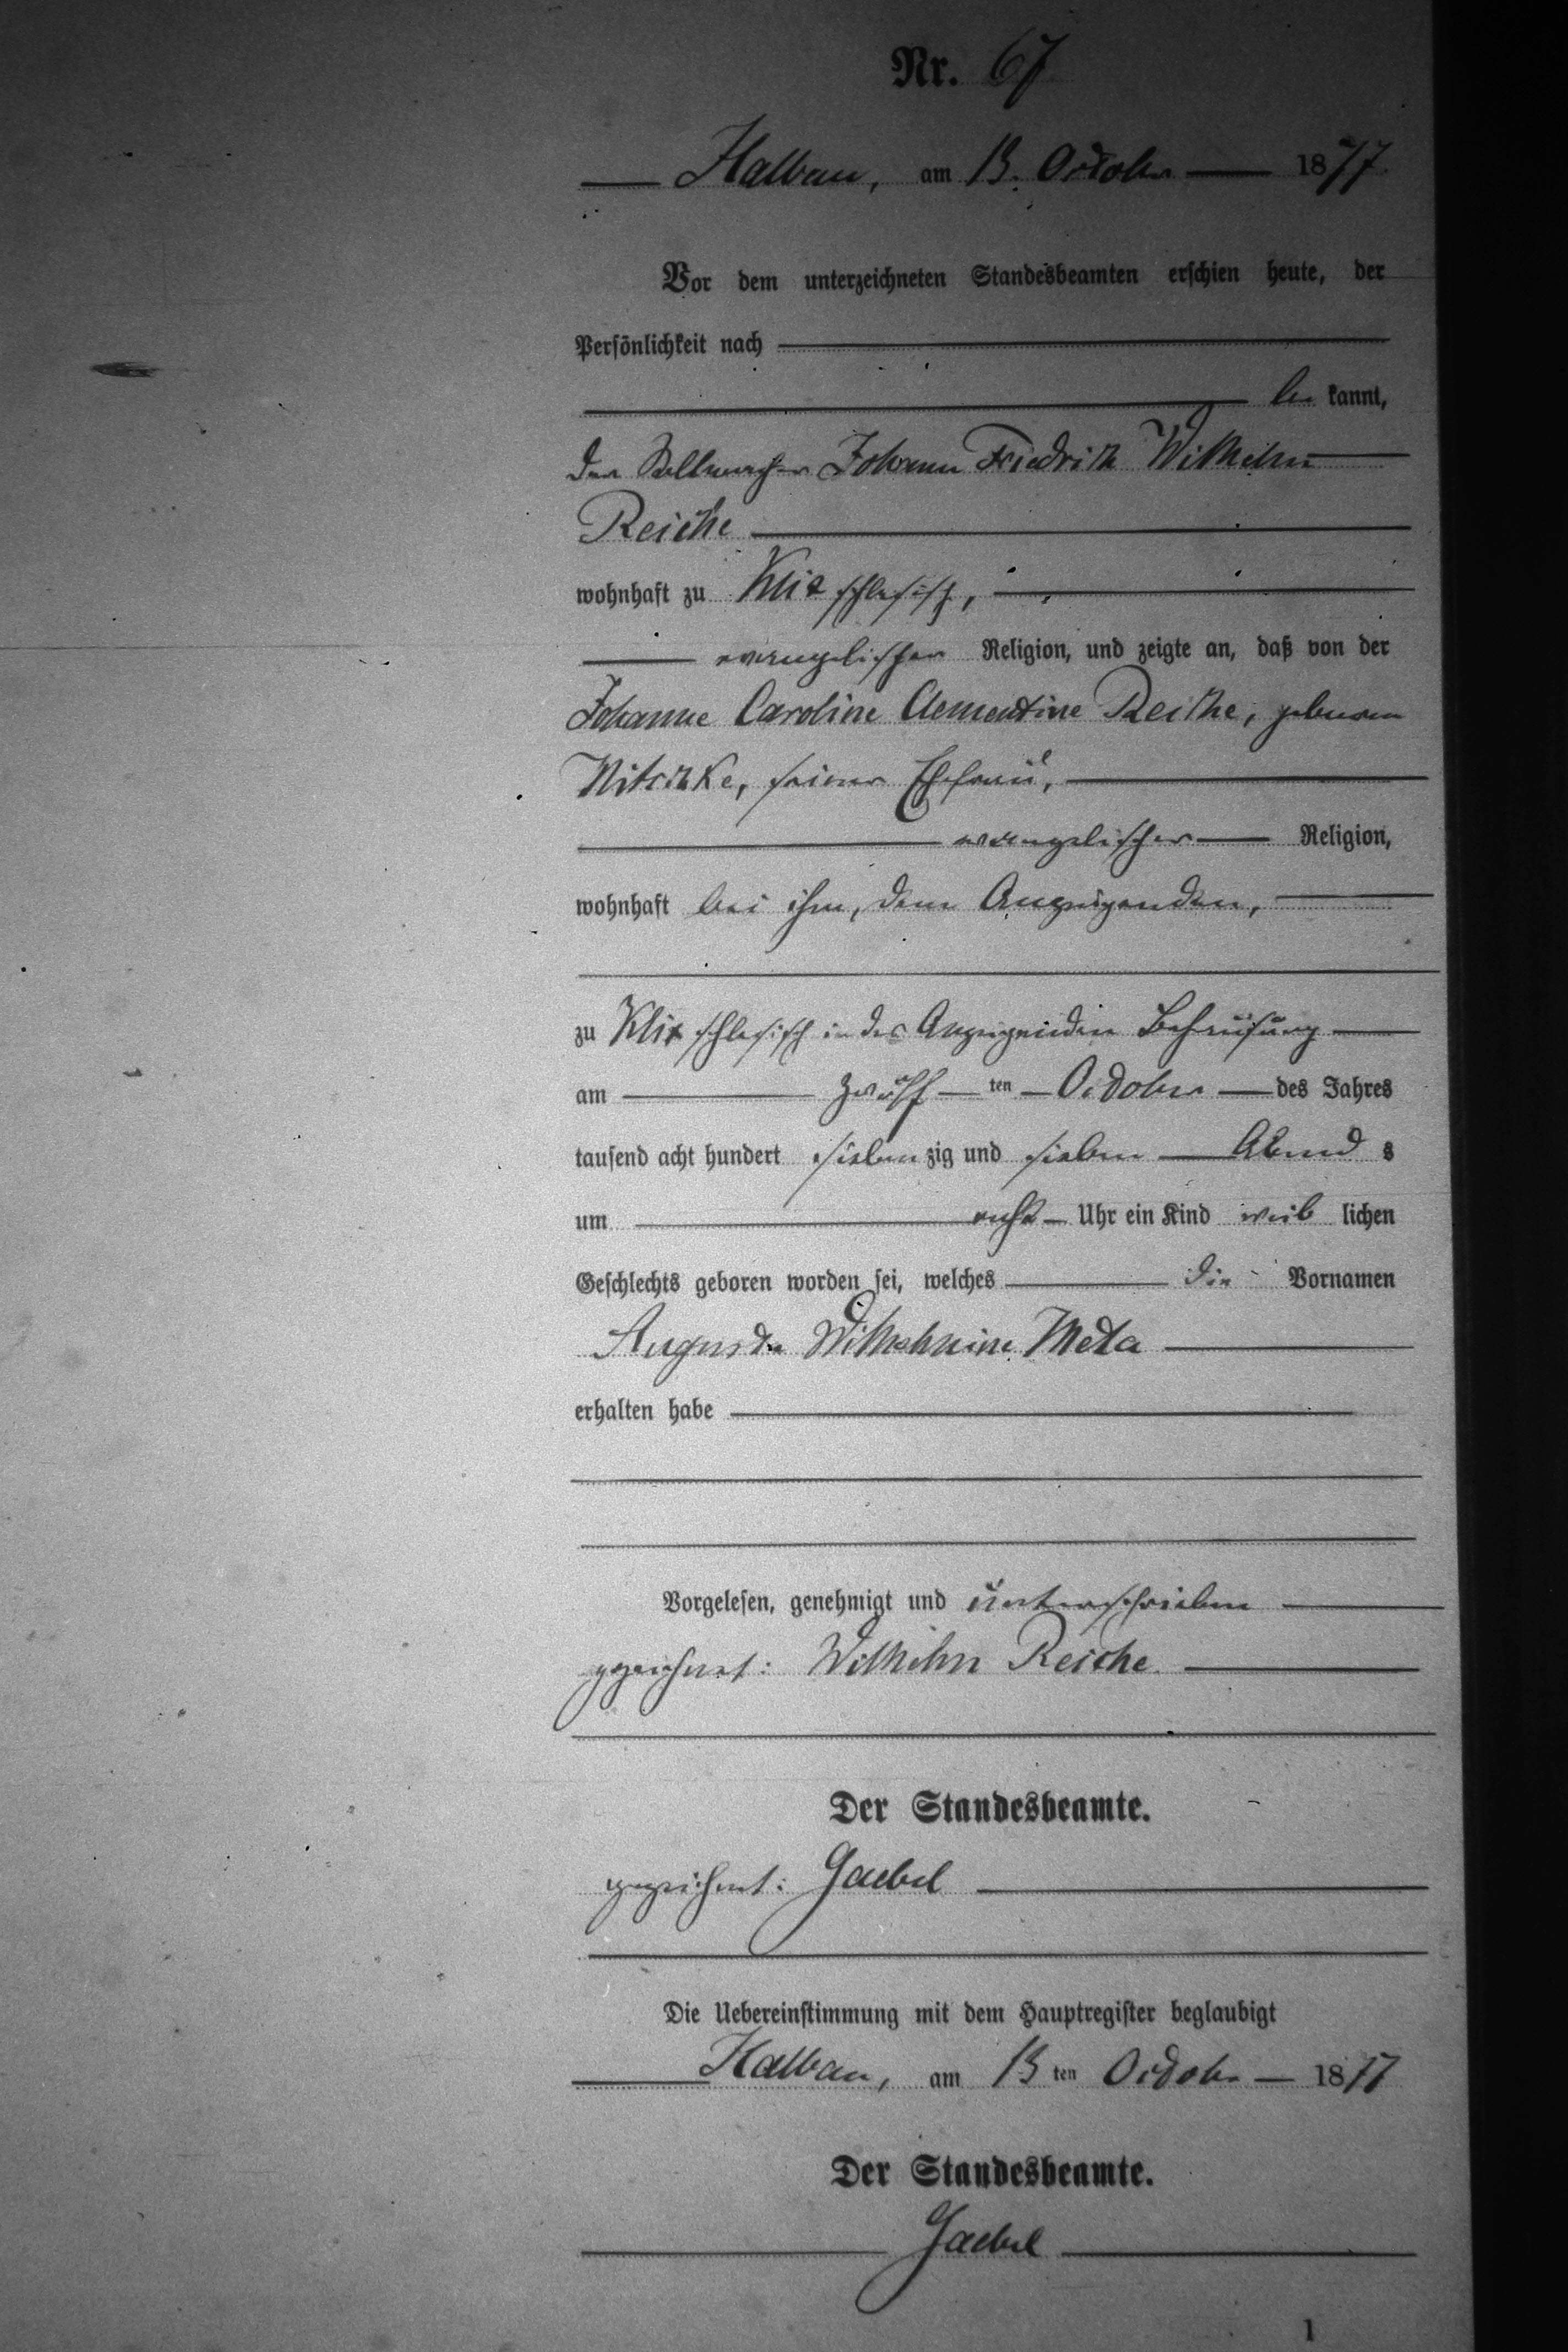 Nr. 67
Halbau, am 13. October 1877.
Vor dem unterzeichneten Standesbeamten erschien heute, der
Persönlichkeit nach
be kannt,
der Stellmacher Johann Friedrich Wilhelm
Reiche
wohnhaft zu Klix schlesisch,
evangelischer Religion, und zeigte an, daß von der
Johanne Caroline Clementine Reiche, geboren
Nitschke, seiner Ehefrau,
evangelischer Religion,
wohnhaft bei ihm, dem Anzeigenden,
zu Klix schlesisch in des Anzeigenden Behausung
am zwölf ten October des Jahres
tausend acht hundert sieben zig und sieben Abend s
um acht Uhr ein Kind weib lichen
Geschlechts geboren worden sei, welches die Vornamen
Auguste Wilhelmine Meta
erhalten habe
Vorgelesen, genehmigt und unterschrieben
gezeichnet: Wilhelm Reiche.
Der Standesbeamte.
gezeichnet: Gaebel
Die Uebereinstimmung mit dem Hauptregister beglaubigt
Halbau, am 13 ten October 1877
Der Standesbeamte.
Gaebel
1